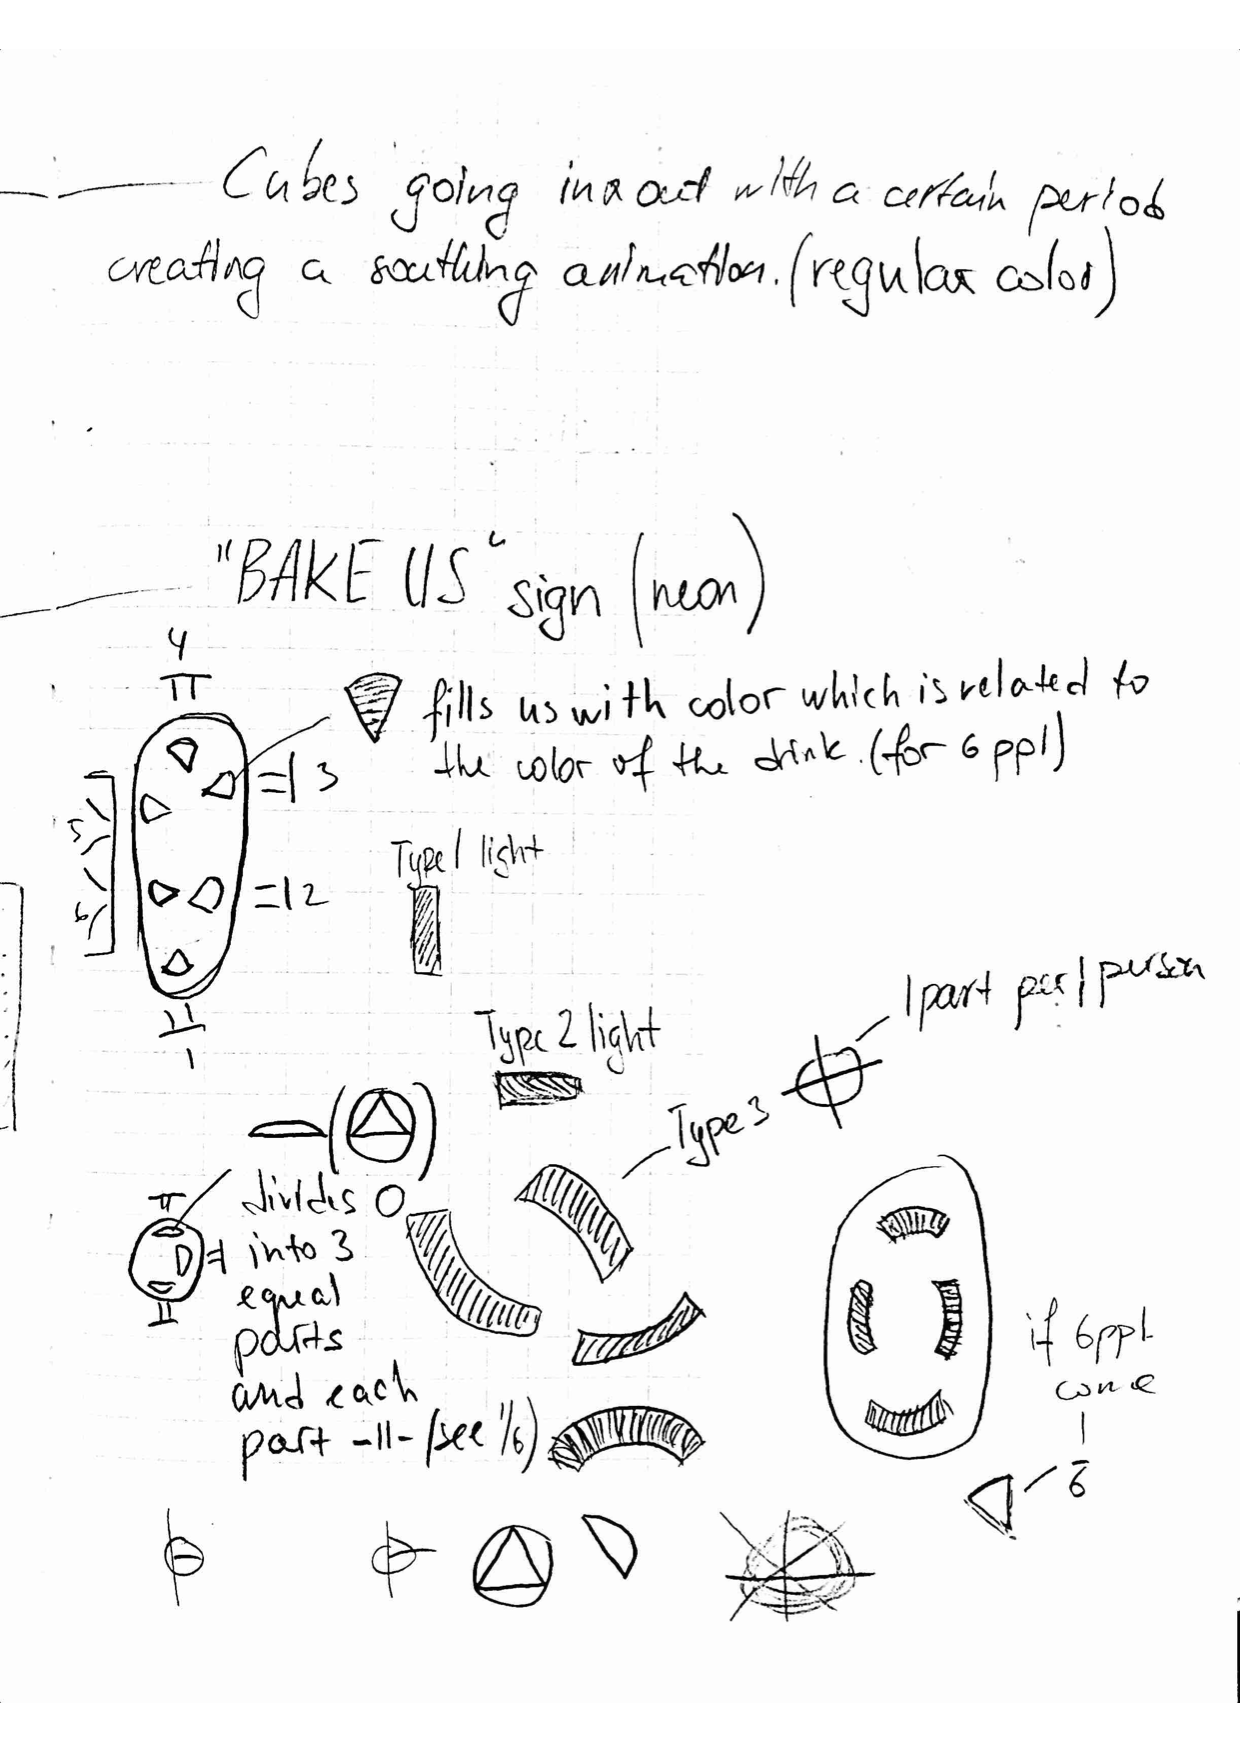 Cubes going in & out with a certain period
creating a southing animation. (regular color)
"BAKE US" sign (neon)
4
fills us with color which is related to
the color of the drink. (for 6 ppl)
3
5
6
2
1
Type 1 light
Type 2 light
1 part per 1 person
Type 3
divides O
into 3
equal
parts
and each
part -11- (see 1/6)
if 6 ppl
come
6